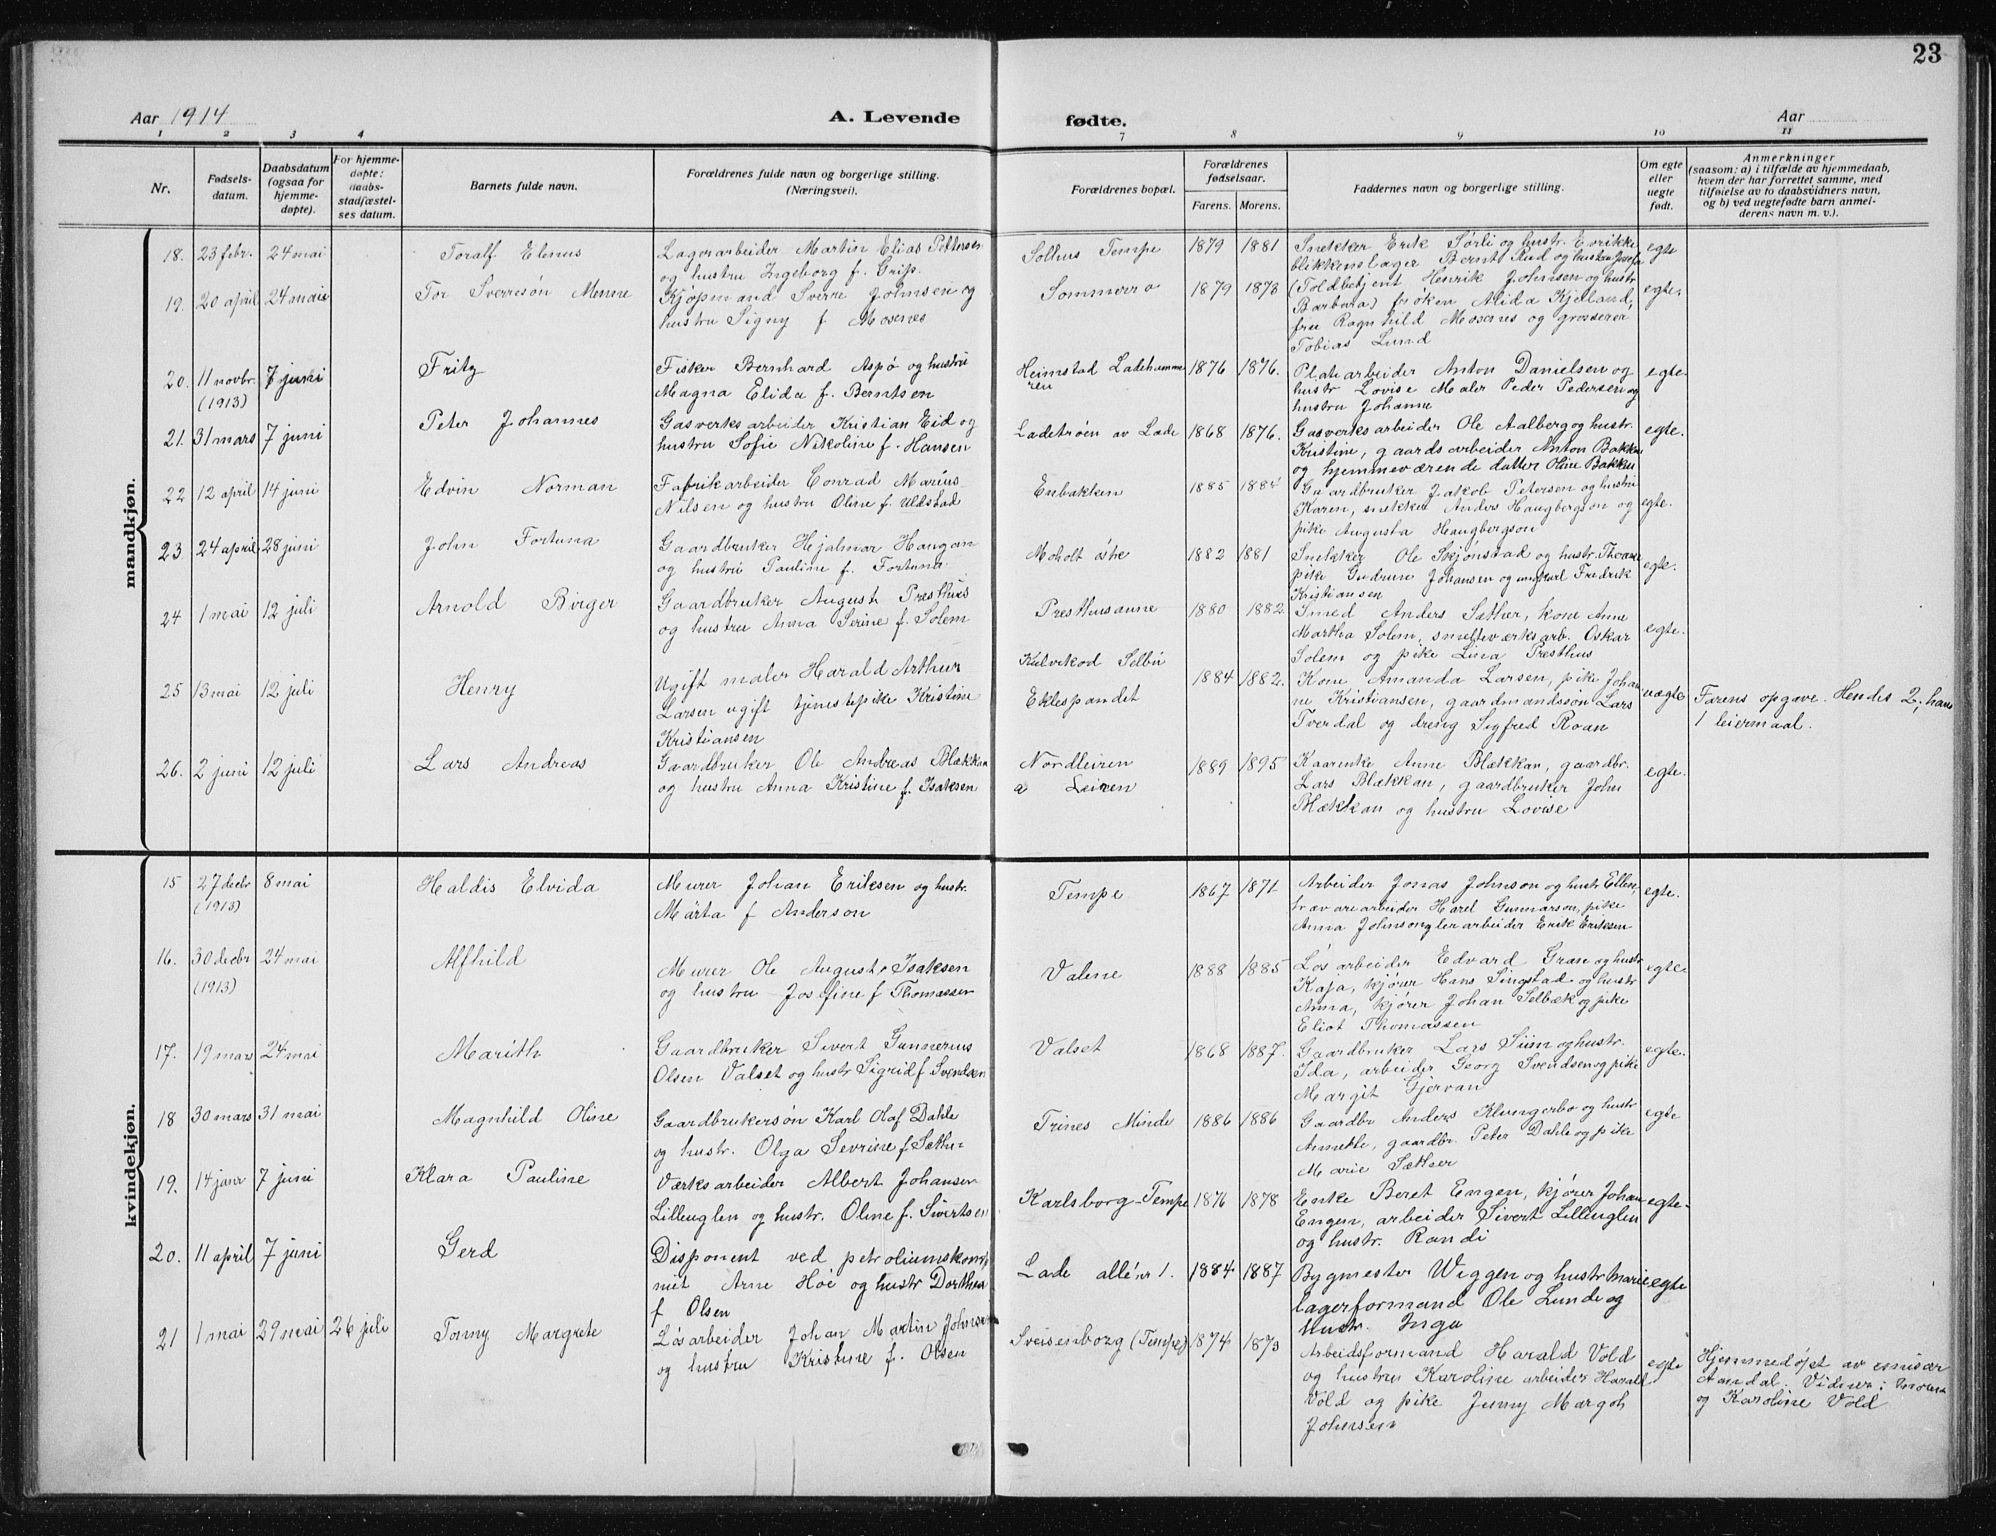 23
Aar 1914
A. Levende fødte.
Aar
1 2 3 4 7 8 9 10 11
Nr.
Fødsels-
datum.
Daabsdatum
(ogsaa for
hjemme-
døpte).
For hjemme-
døpte:
daabs-
stadfæstel-
ses datum.
Barnets fulde navn.
Forældrenes fulde navn og borgerlige stilling.
(Næringsvei).
Forældrenes bopæl.
Forældrenes
fødselsaar.
Farens. Morens.
Faddernes navn og borgerlige stilling.
Om egte
eller
uegte
født.
Anmerkninger
(saasom: a) i tilfælde av hjemmedaab,
hvem der har forrettet samme, med
tilføielse av to daabsvidners navn,
og b) ved uegtefødte barn anmel-
derens navn m. v.).
mandkjøn.
18. 23 febr. 24 mai
Toralf Elenus
Lagerarbeider Martin Elias Pettersen
og hustru Ingeborg f. Grip.
Solhus Tempe
1879 1881
Snekker Erik Sørli og hustr.
blikkenslager Bernt Rud og hustru
egte
19. 20 april 24 mai
Tor Sverresøn Menne
Kjøpmand Sverre Johnsen og
hustru Signy f. Mosenes
Sommerro
1879 1873
(Toldbetjent Henrik Johnsen og hustr
Barbara) frøken Alida Kjelland,
fru Ragnhild Mosenes og grosserer
Tobias Lund
egte.
20. 11 novbr. 7 juni
(1913)
Fritz
Fisker Bernhard Aspø og hustru
Magna Elida f. Berntsen
Heimstad Ladehamme
ren
1876 1876.
Platearbeider Anton Danielsen og
hustr Lovise Maler Peder Pedersen og
hustru Johanne
egte
21. 31 mars 7 juni
Peter Johannes
Gasverksarbeider Kristian Eid og
hustru Sofie Nikoline f. Hansen
Ladetrøen av Lade
1868 1876.
Gasverksarbeider Ole Aalberg og hustr.
Kristine, gaardsarbeider Anton Bakken
og hjemmeværende datter Oline Bakken
egte.
22 12 april 14 juni
Edvin Norman
Fabrikarbeider Conrad Marius
Nilsen og hustru Oline f. Uldstad
Enbakken
1885 1884
Gaardbruker Jakob Petersen og hustru
Karen, snekker Anders Haugbergson og
pike Augusta Haugbergson
egte.
23 24 april 28 juni
John Fortuna
Gaardbruker Hjalmar Haugan
og hustru Pauline f. Fortuna
Moholt østre
1882 1881
Snekker Ole Skjønstad og hustr.
pike Gudrun Johansen og ungkarl Fredrik
Kristiansen
egte.
24 1 mai 12 juli
Arnold Birger
Gaardbruker August Presthus
og hustru Anna Serine f. Solem
Presthusaune
1880 1882
Smed Anders Sæther, kone Anne
Martha Solem, smelteverksarb. Oskar
Solem og pike Lina Presthus
egte.
25 13 mai 12 juli
Henry
Ugift maler Harald Arthur
Larsen ugift tjenestepike Kristine
Kristiansen
Kulvikod Selbu
Eklespandet
1884 1882.
Kone Amanda Larsen, pike Johan
ne Kristiansen, gaardmandssøn Lars
Tverdal og dreng Sigfred Roan
uægte
Farens opgave. Hendes 2, hans
1 leiermaal.
26. 2 juni 12 juli
Lars Andreas
Gaardbruker Ole Andreas Blækkan
og hustru Anna Kristine f. Isaksen
Nordleiren
a Leiren
1889 1895
Kaarenke Anne Blækkan, gaardbr.
Lars Blækkan, gaardbruker John
Blækkan og hustru Lovise
egte.
kvindekjøn.
15 27 decbr 8 mai
(1913)
Haldis Elvida
Murer Johan Eriksen og hustr.
Märta f Anderson
Tempe
1867 1871
Arbeider Jonas Johnson og hustr Ellen,
trævarearbeider Harel Gunnarson, pike
Anna Johnson arbeider Erik Eriksen
egte.
16. 30 decbr 24 mai
(1913)
Alfhild
Murer Ole August Isaksen
og hustru Josefine f Thomassen
Valene
1888 1885
Løsarbeider Edvard Gran og hustr
Kaja, kjører Hans Singstad og hustr
Anna, kjører Johan Selbæk og pike
Eliot Thomassen
egte
17. 19 mars 24 mai
Marith
Gaardbruker Sivert Gunnerius
Olsen Valset og hustr Sigrid f Svendsen
Valset
1868 1887.
Gaardbruker Lars Sum og hustr.
Ida, arbeider Georg Svendsen og pike
Margit Gjervan
egte.
18 30 mars 31 mai
Magnhild Oline
Gaardbrukersøn Karl Olaf Dahle
og hustr. Olga Sevrine f. Sæther
Trines Minde
1886 1886
Gaardbr Anders Klungerbo og hustr
Annette, gaardbr. Peter Dahle og pike
Marie Sæther
egte
19. 14 janr 7 juni
Klara Pauline
Værksarbeider Albert Johansen
Lilleuglen og hustr. Oline f. Sivertsen
Karlsborg-Tempe
1876 1878
Enke Beret Engen, kjører Johan
Engen, arbeider Sivert Lilleuglen
og hustr. Randi
egte
20. 11 april 7 juni
Gerd
Disponent ved petroliumskom
niet Arne Høe og hustr Dorthea
f Olsen
Lade allé nr 1.
1884 1887
Bygmester Wiggen og hustr Marie
lagerformand Ole Lunde og
hustr. Inga
egte
21 1 mai 29 mai 26 juli
Tonny Margrete
Løsarbeider Johan Martin Johnsen
og hustru Kristine f. Olsen
Sveisenborg (Tempe)
1874 1873
Arbeidsformand Harald Vold
og hustru Karoline arbeider Harald
Vold og pike Jenny Margoh
Johnsen
egte
Hjemmedøpt av emissær
Aamdal. Vidner:
og Karoline Vold